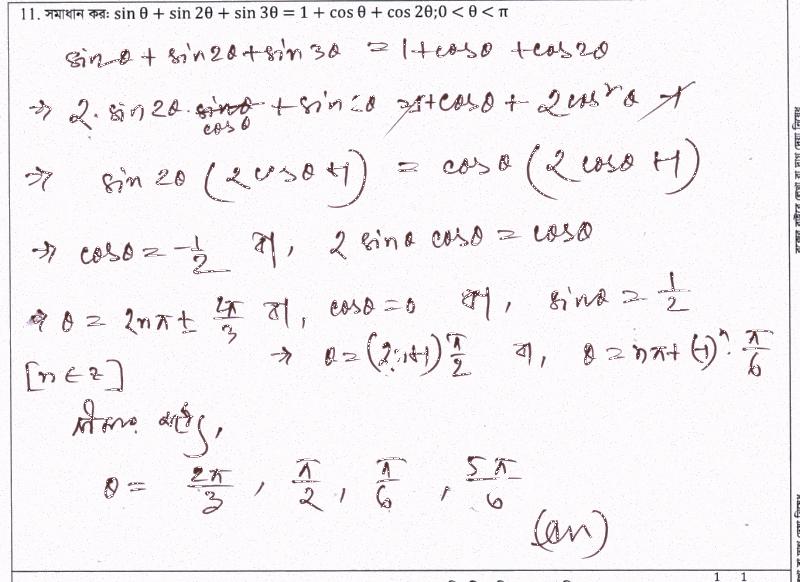 11. সমাধান কর: sin θ + sin 2θ + sin 3θ = 1 + cos θ + cos 2θ; 0 < θ < π
sin θ + sin 2θ + sin 3θ = 1 + cos θ + cos 2θ
⇒ 2. sin 2θ. cos θ + sin 2θ = 1 + cos θ + 2cos² θ - 1
⇒ sin 2θ (2 cos θ + 1) = cos θ (2 cos θ + 1)
⇒ cos θ = -1/2 বা, 2 sin θ cos θ = cos θ
⇒ θ = 2nπ ± 2π/3 বা, cos θ = 0 বা, sin θ = 1/2
[n ∈ Z] ⇒ θ = (2n+1) π/2 বা, θ = nπ + (-1)ⁿ. π/6
θ = 2π/3, π/2, π/6, 5π/6
(an)
1 1